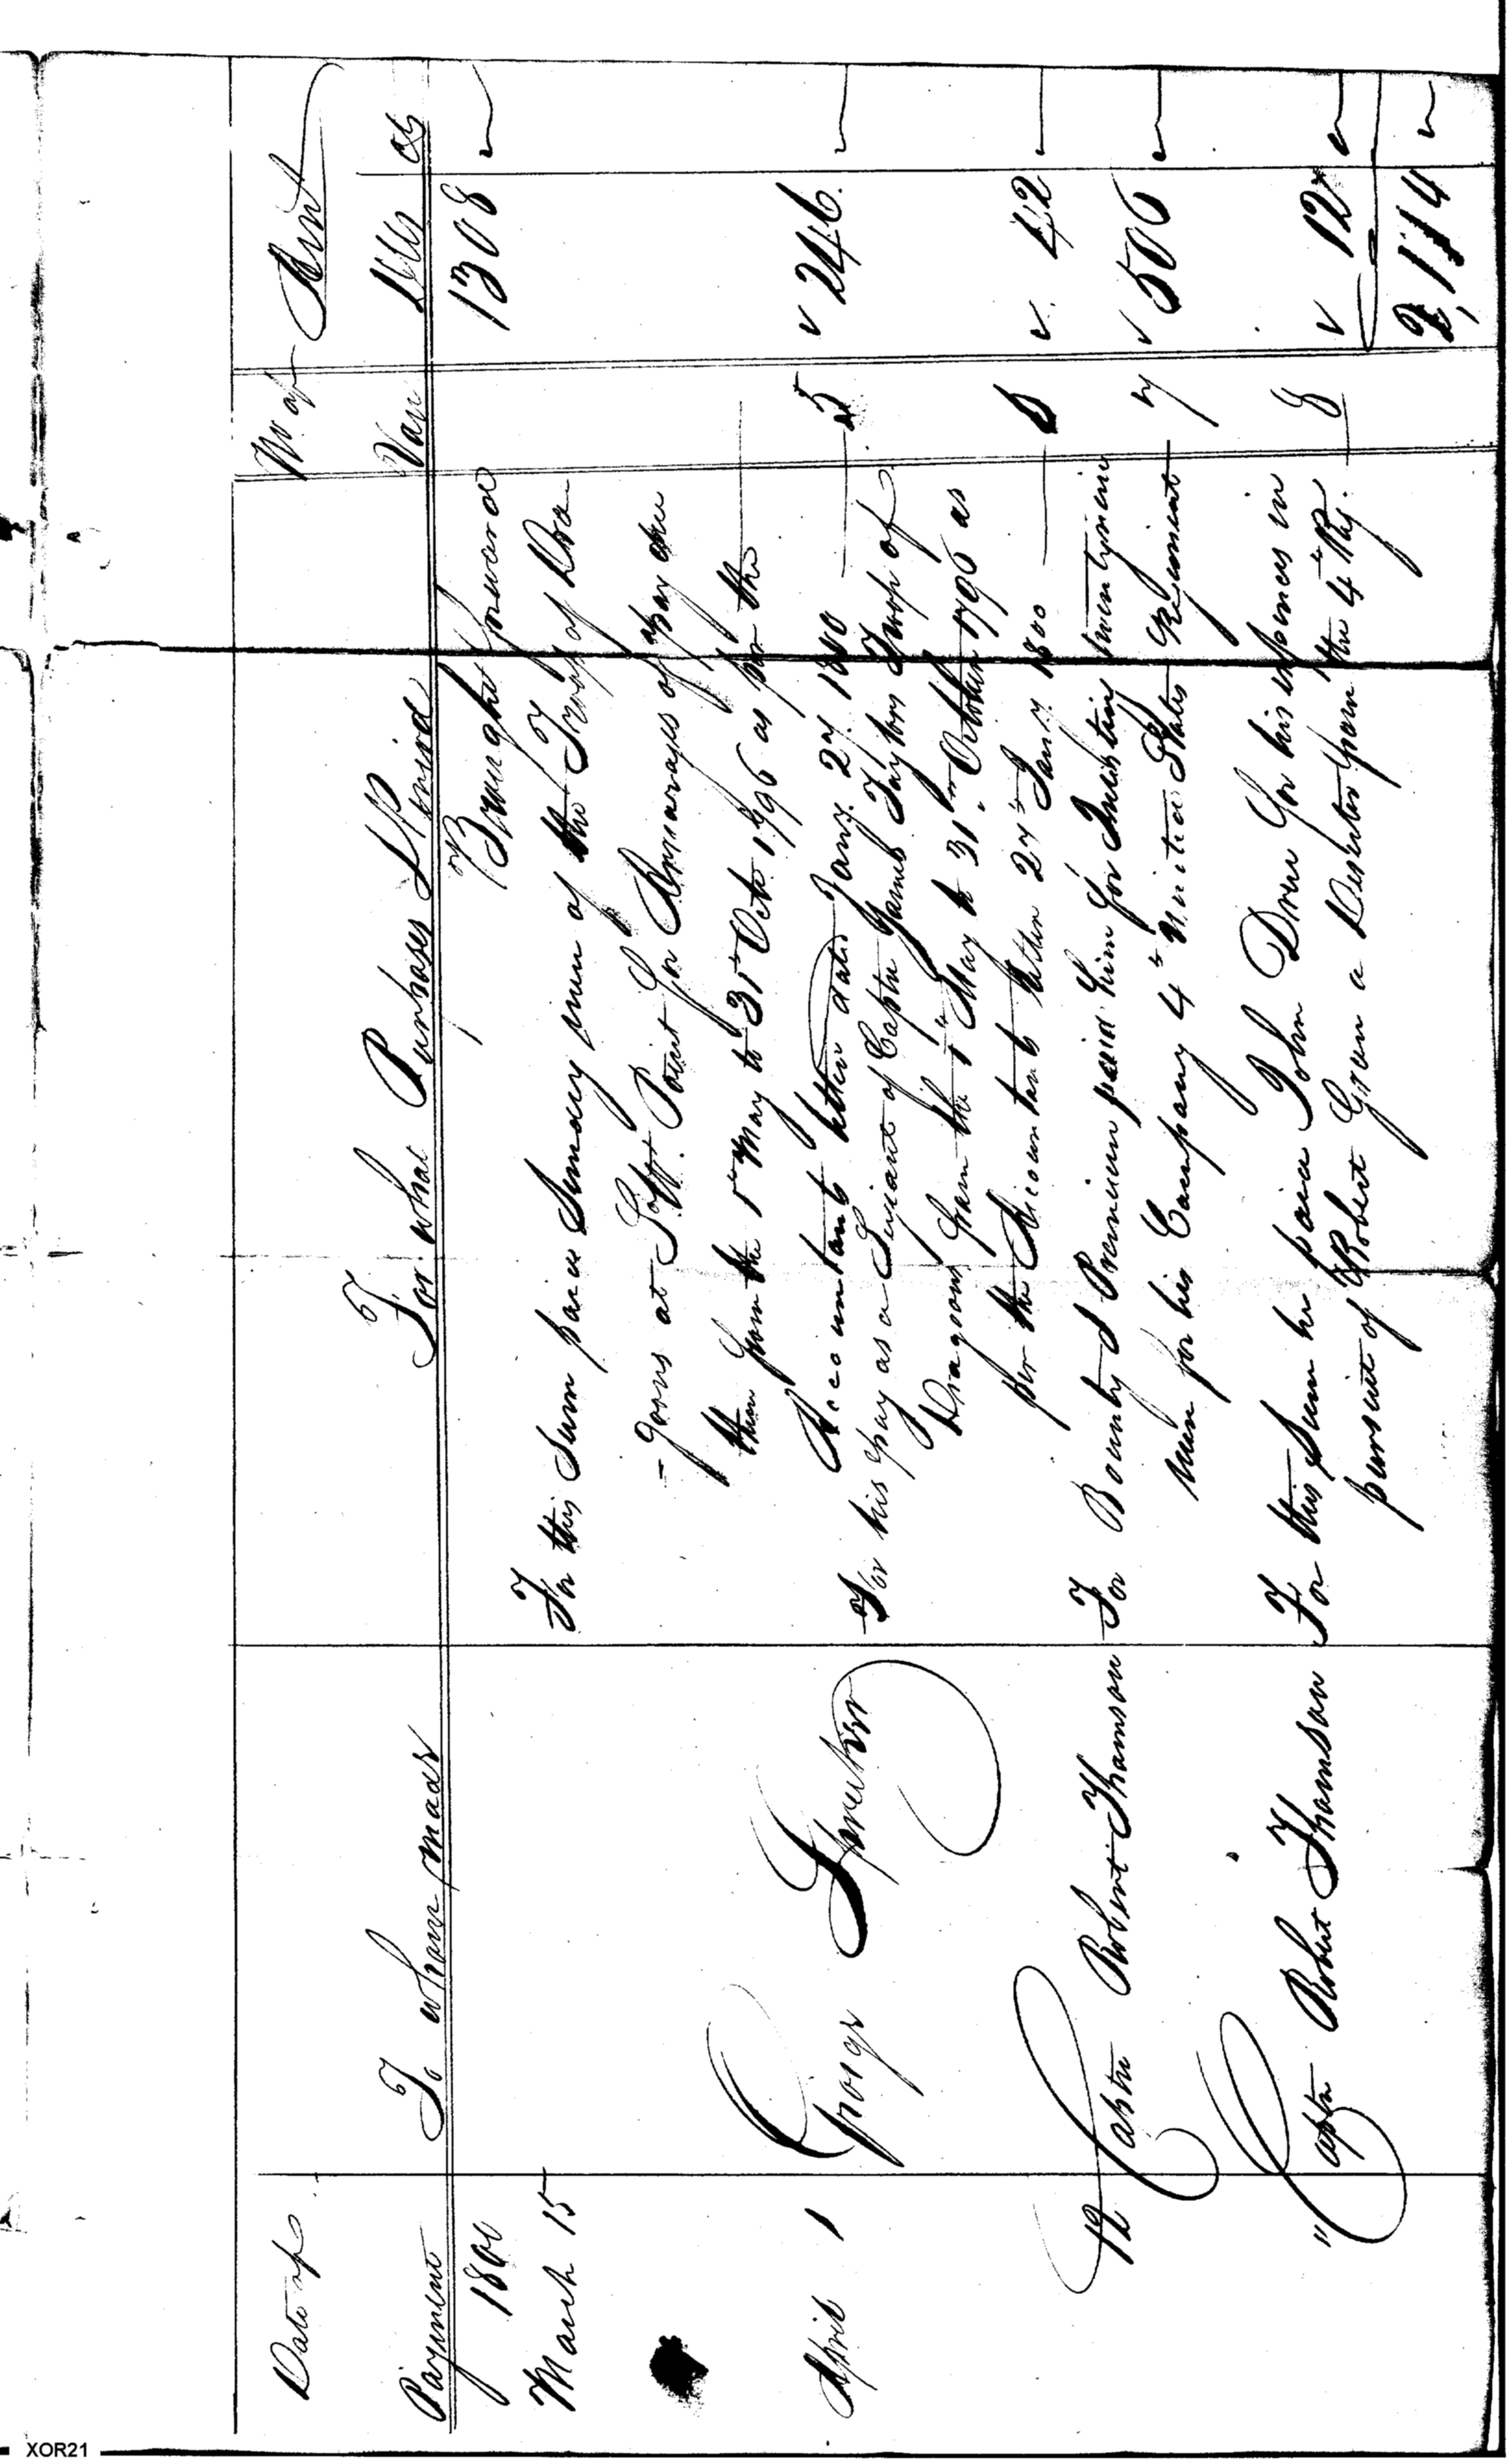 Date of
Payment To whom made For what Purposes No. of Vou Amt Dlls Cts
1800 Brought forward 1308
March 15 For this Sum paid Sundry men of the Troop of Dra
-goons at So. Wt. Point for Arrearages of pay due
them from the 1st May to 31st Octo. 1796 as per the
Accountants letter date Jany. 27. 1800 5 246.
April 1 George For his pay as a Serjeant of Captn James Taylors Troop of
Dragoons from the 1st May to 31st October 1796 as
per the Accountants letter 27th Jany. 1800 6 42
12 Captn Robert Thomson For Bounty & Premium paid him for Inlisting twentynine
men for his Company 4th United States Regiment 7 506
" Captn Robert Thomson For this Sum he paid John Drew for his expences in
pursuit of Robert Green a Deserter from the 4th Rg. 8 12
2,114
XOR21